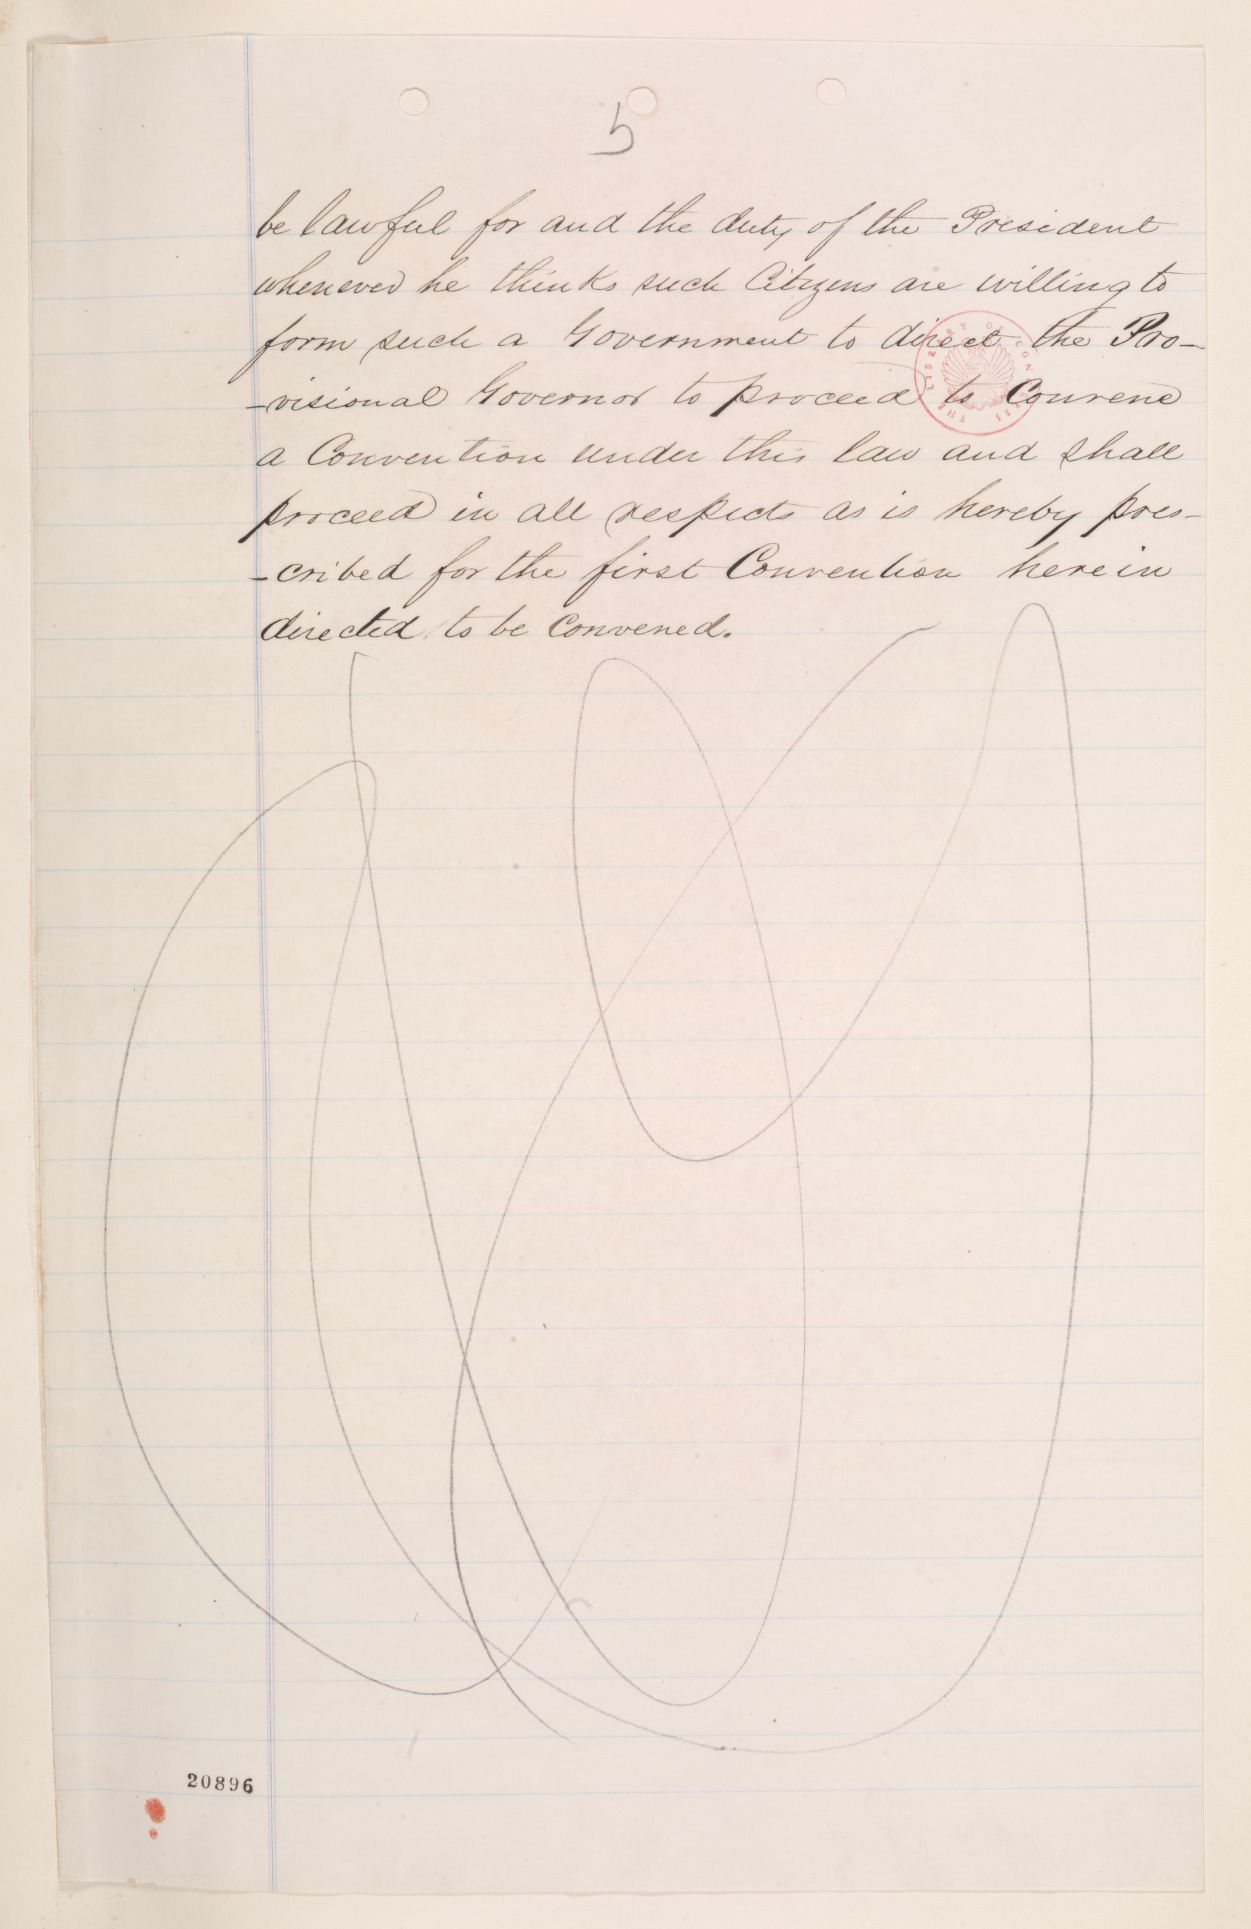 5
be lawful for and the duty of the President
whenever he thinks such Citizens are willing to
form such a Government to direct the Pro-
-visional Governor to proceed to Convene
a Convention under this law and shall
proceed in all respects as is hereby pres-
-cribed for the first Convention herein
directed to be Convened.
THE LIBRARY OF CONGRESS
20896